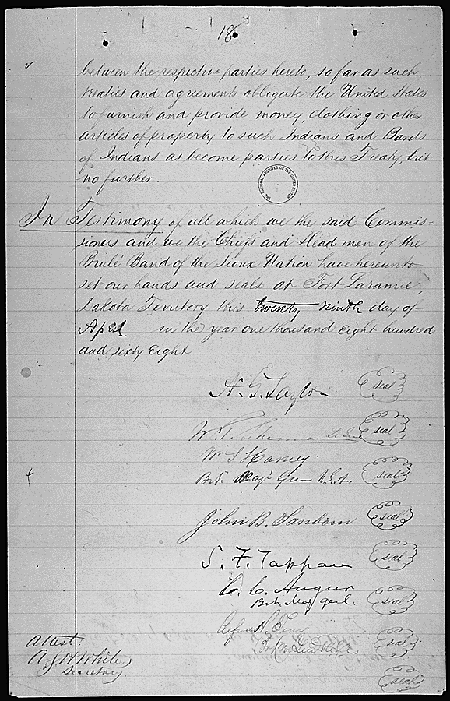 18
between the respective parties hereto, so far as such
treaties and agreements obligate the United States
to furnish and provide money, clothing or other
articles of property to such Indians and Bands
of Indians as become parties to this Treaty, but
no further.
In Testimony of all which we the said Commis-
sioners and we the Chiefs and Head men of the
Brulé Band of the Sioux Nation have hereunto
set our hands and seals at Fort Laramie,
Dakota Territory this twenty ninth day of
April in the year one thousand eight hundred
and sixty eight
N. G. Taylor seal
seal
Wm S Harney
Bvt Maj Gen U.S.A. seal
John B. Sanborn seal
S. F. Tappan seal
C. C. Augur
Bvt Maj Genl. seal
Alfred H. seal
Attest
A S H White
Secretary
seal